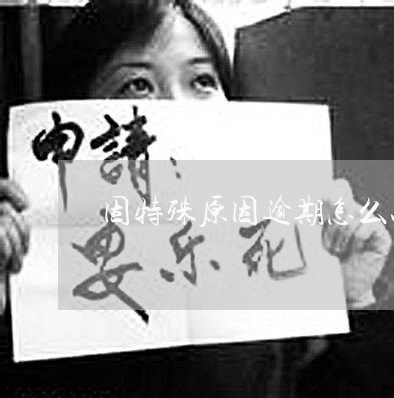 申請：
因特殊原因逾期怎么
安乐死